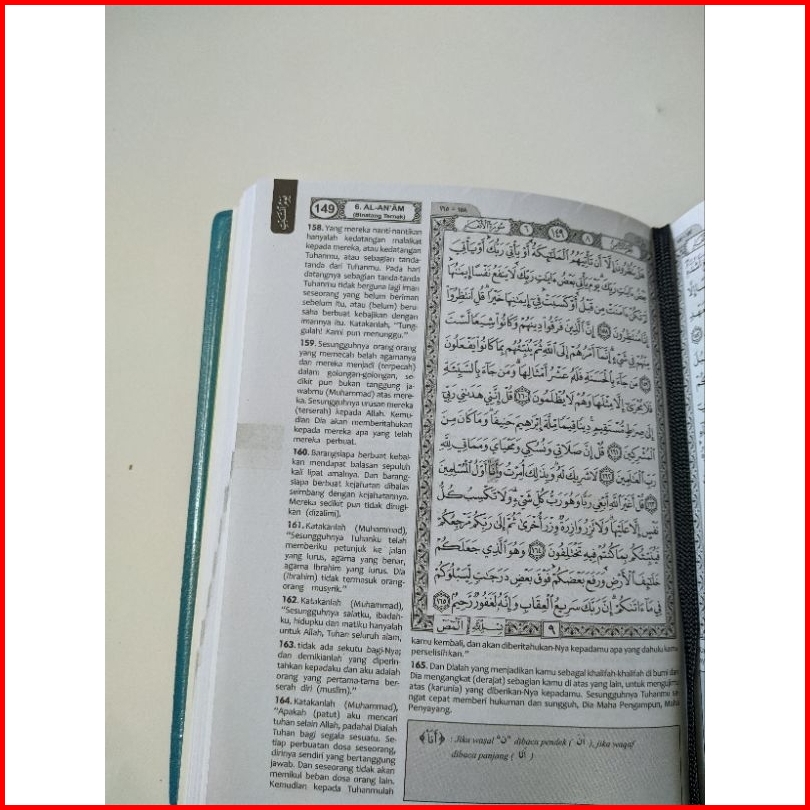 149
6. AL-AN'ĀM
(Binatang Ternak)
158. Yang mereka nanti-nantikan
hanyalah kedatangan malaikat
kepada mereka, atau kedatangan
Tuhanmu, atau sebagian tanda-
tanda dari Tuhanmu. Pada hari
datangnya sebagian tanda-tanda
Tuhanmu tidak berguna lagi iman
seseorang yang belum beriman
sebelum itu, atau (belum) beru-
saha berbuat kebajikan dengan
imannya itu. Katakanlah, "Tung-
gulah! Kami pun menunggu."
159. Sesungguhnya orang-orang
yang memecah belah agamanya
dan mereka menjadi (terpecah)
dalam golongan-golongan, se-
dikit pun bukan tanggung ja-
wabmu (Muhammad) atas mere-
ka. Sesungguhnya urusan mereka
(terserah) kepada Allah. Kemu-
dian Dia akan memberitahukan
kepada mereka apa yang telah
mereka perbuat.
160. Barangsiapa berbuat kebai-
kan mendapat balasan sepuluh
kali lipat amalnya. Dan barang-
siapa berbuat kejahatan dibalas
seimbang dengan kejahatannya.
Mereka sedikit pun tidak dirugi-
kan (dizalimi).
161. Katakanlah (Muhammad),
"Sesungguhnya Tuhanku telah
memberiku petunjuk ke jalan
yang lurus, agama yang benar,
agama Ibrahim yang lurus. Dia
(Ibrahim) tidak termasuk orang-
orang musyrik."
162. Katakanlah (Muhammad),
"Sesungguhnya salatku, ibadah-
ku, hidupku dan matiku hanyalah
untuk Allah, Tuhan seluruh alam,
163. tidak ada sekutu bagi-Nya;
dan demikianlah yang diperin-
tahkan kepadaku dan aku adalah
orang yang pertama-tama ber-
serah diri (muslim)."
164. Katakanlah (Muhammad),
"Apakah (patut) aku mencari
tuhan selain Allah, padahal Dialah
Tuhan bagi segala sesuatu. Se-
tiap perbuatan dosa seseorang,
dirinya sendiri yang bertanggung
jawab. Dan seseorang tidak akan
memikul beban dosa orang lain.
Kemudian kepada Tuhanmulah
سُورَةُ الْأَنْعَامِ
٦
١٤٩
٨
هَلْ يَنْظُرُونَ إِلَّا أَنْ تَأْتِيَهُمُ الْمَلَائِكَةُ أَوْ يَأْتِيَ رَبُّكَ أَوْ يَأْتِيَ
بَعْضُ آيَاتِ رَبِّكَ يَوْمَ يَأْتِي بَعْضُ آيَاتِ رَبِّكَ لَا يَنْفَعُ نَفْسًا إِيمَانُهَا
لَمْ تَكُنْ آمَنَتْ مِنْ قَبْلُ أَوْ كَسَبَتْ فِي إِيمَانِهَا خَيْرًا قُلِ انْتَظِرُوا
إِنَّا مُنْتَظِرُونَ ١٥٨ إِنَّ الَّذِينَ فَرَّقُوا دِينَهُمْ وَكَانُوا شِيَعًا لَسْتَ
مِنْهُمْ فِي شَيْءٍ إِنَّمَا أَمْرُهُمْ إِلَى اللَّهِ ثُمَّ يُنَبِّئُهُمْ بِمَا كَانُوا يَفْعَلُونَ
١٥٩ مَنْ جَاءَ بِالْحَسَنَةِ فَلَهُ عَشْرُ أَمْثَالِهَا وَمَنْ جَاءَ بِالسَّيِّئَةِ
فَلَا يُجْزَى إِلَّا مِثْلَهَا وَهُمْ لَا يُظْلَمُونَ ١٦٠ قُلْ إِنَّنِي هَدَانِي رَبِّي
إِلَى صِرَاطٍ مُسْتَقِيمٍ دِينًا قِيَمًا مِلَّةَ إِبْرَاهِيمَ حَنِيفًا وَمَا كَانَ مِنَ
الْمُشْرِكِينَ ١٦١ قُلْ إِنَّ صَلَاتِي وَنُسُكِي وَمَحْيَايَ وَمَمَاتِي لِلَّهِ
رَبِّ الْعَالَمِينَ ١٦٢ لَا شَرِيكَ لَهُ وَبِذَلِكَ أُمِرْتُ وَأَنَا أَوَّلُ الْمُسْلِمِينَ
١٦٣ قُلْ أَغَيْرَ اللَّهِ أَبْغِي رَبًّا وَهُوَ رَبُّ كُلِّ شَيْءٍ وَلَا تَكْسِبُ كُلُّ
نَفْسٍ إِلَّا عَلَيْهَا وَلَا تَزِرُ وَازِرَةٌ وِزْرَ أُخْرَى ثُمَّ إِلَى رَبِّكُمْ مَرْجِعُكُمْ
فَيُنَبِّئُكُمْ بِمَا كُنْتُمْ فِيهِ تَخْتَلِفُونَ ١٦٤ وَهُوَ الَّذِي جَعَلَكُمْ
خَلَائِفَ الْأَرْضِ وَرَفَعَ بَعْضَكُمْ فَوْقَ بَعْضٍ دَرَجَاتٍ لِيَبْلُوَكُمْ
فِي مَا آتَاكُمْ إِنَّ رَبَّكَ سَرِيعُ الْعِقَابِ وَإِنَّهُ لَغَفُورٌ رَحِيمٌ ١٦٥
٩
kamu kembali, dan akan diberitahukan-Nya kepadamu apa yang dahulu kamu
perselisihkan."
165. Dan Dialah yang menjadikan kamu sebagai khalifah-khalifah di bumi dan
Dia mengangkat (derajat) sebagian kamu di atas yang lain, untuk mengujimu
atas (karunia) yang diberikan-Nya kepadamu. Sesungguhnya Tuhanmu sa-
ngat cepat memberi hukuman dan sungguh, Dia Maha Pengampun, Maha
Penyayang.
﴿أَنَا﴾ : Jika waṣal "نَ" dibaca pendek ( أَنَ ), jika waqaf
dibaca panjang ( أَنَا )